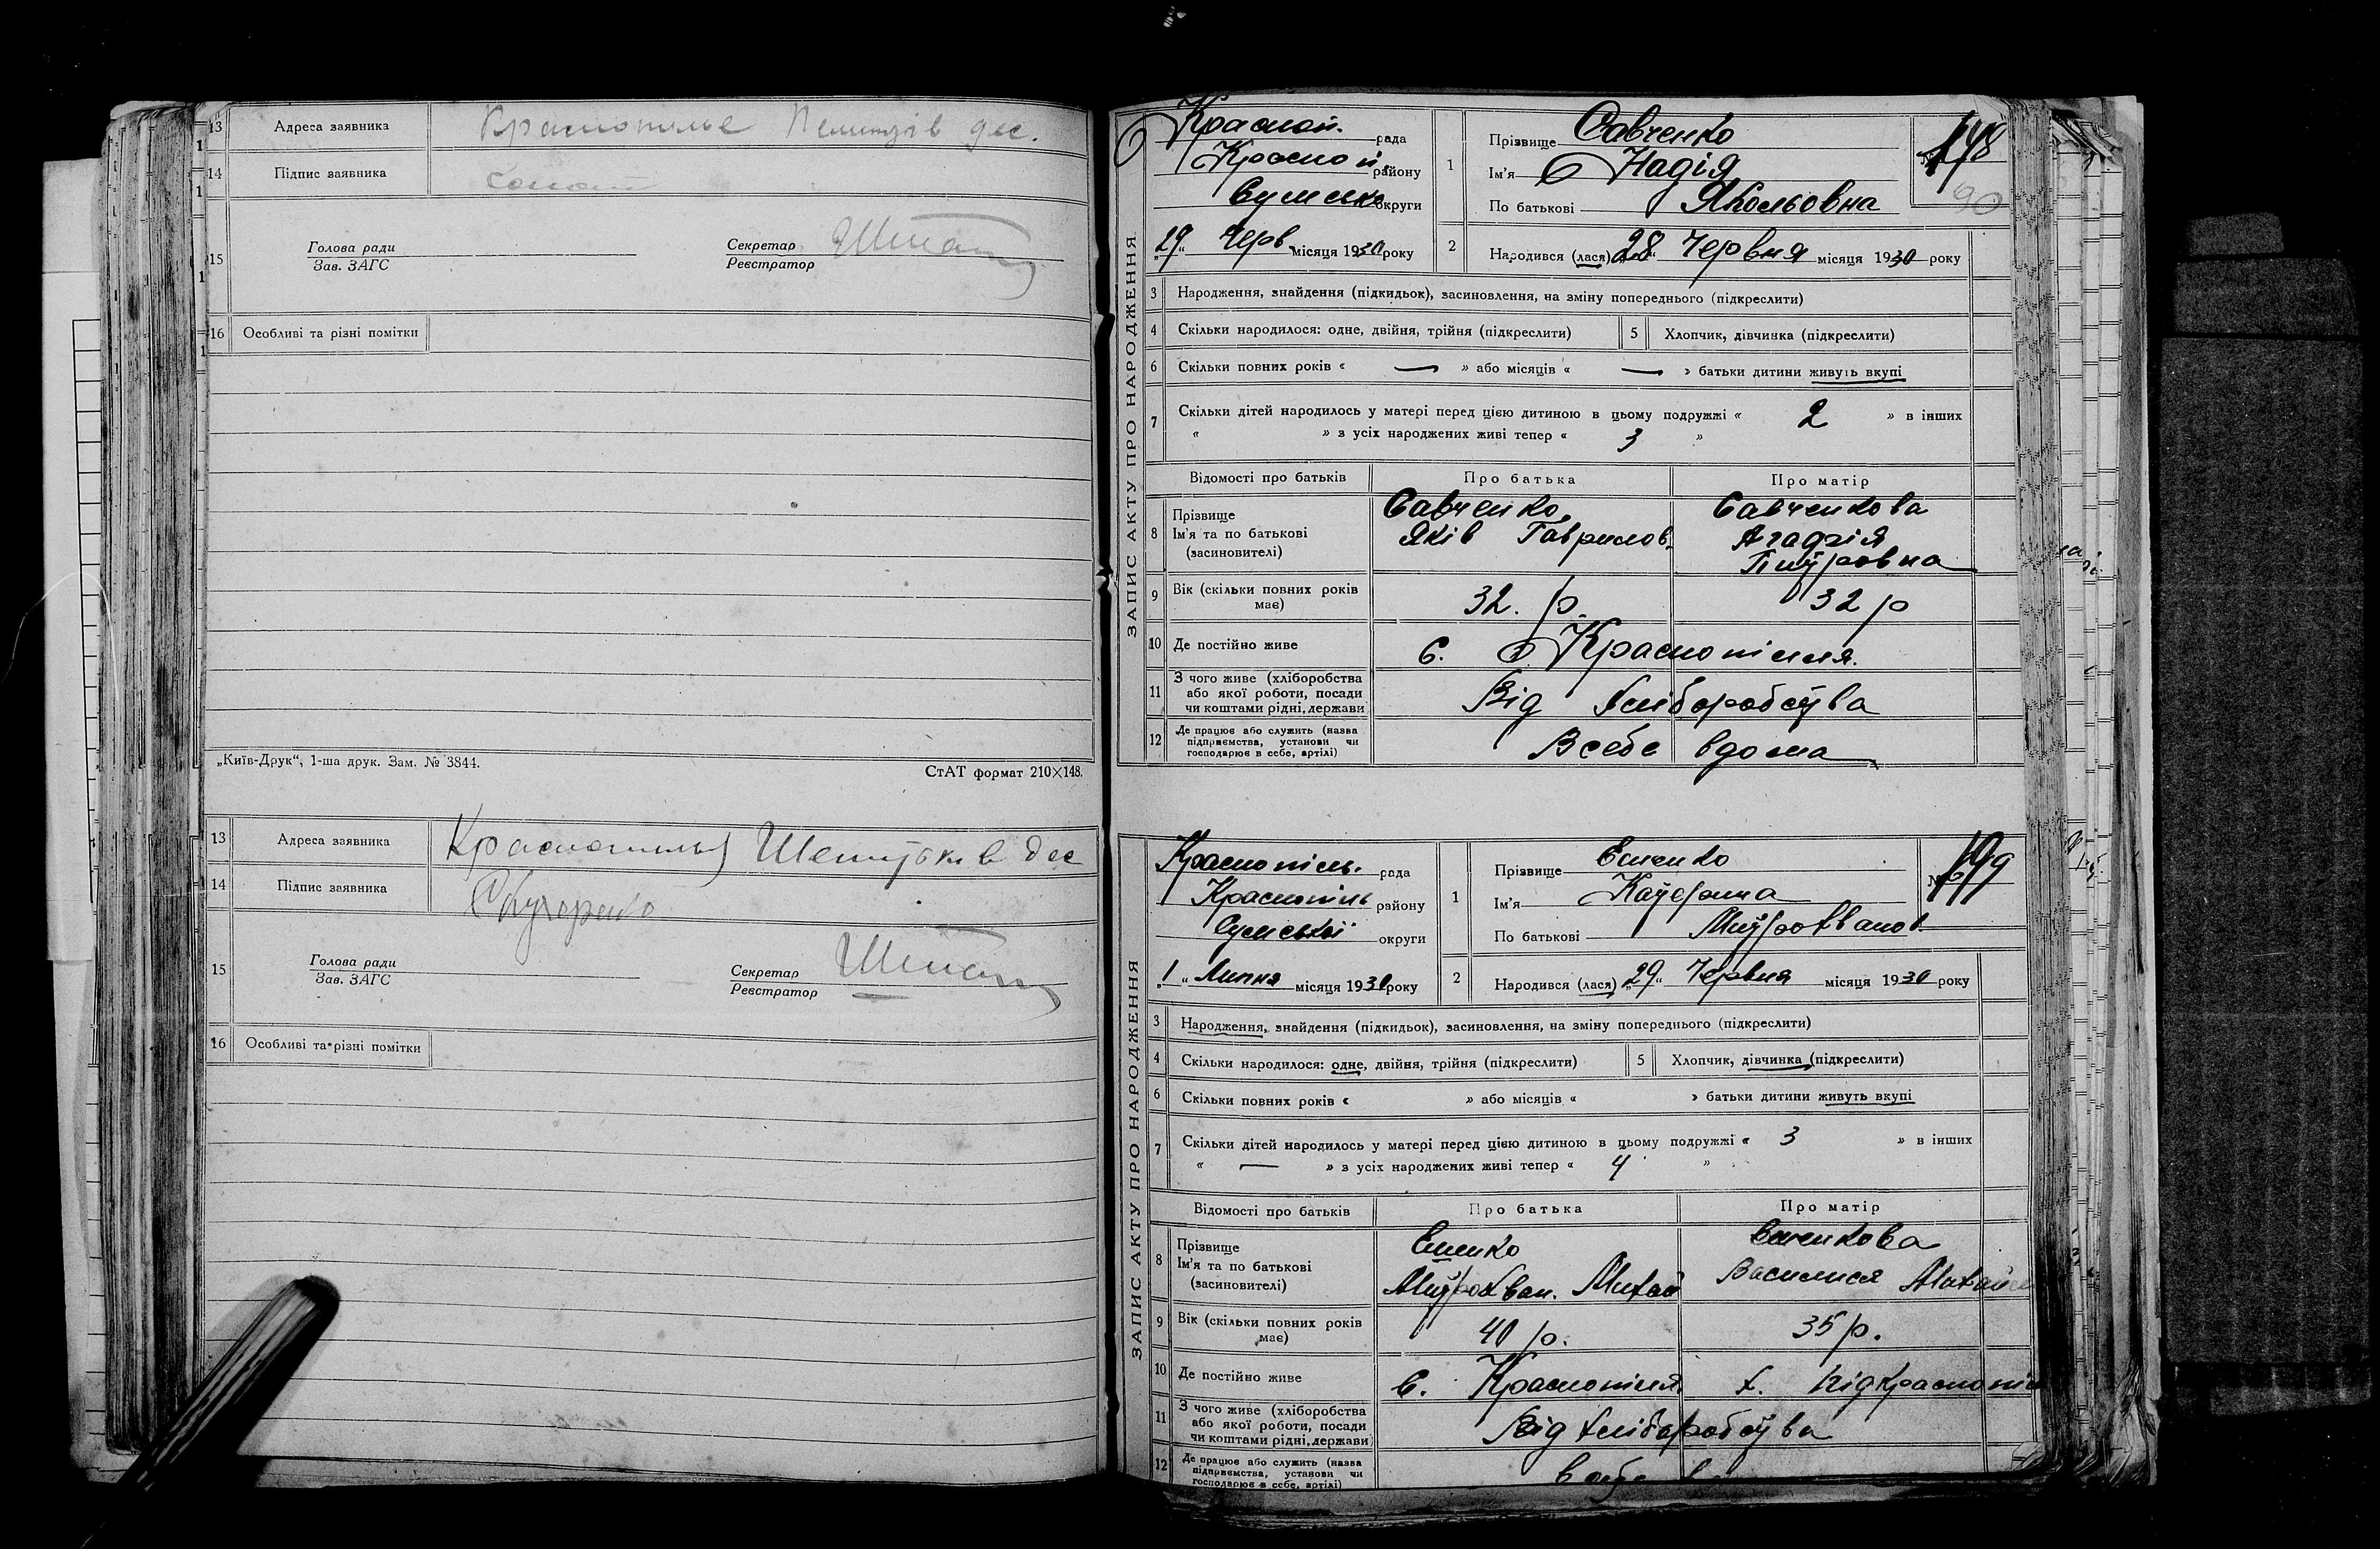 13 Адреса заявника Краснопілье дес.
14 Підпис заявника
15 Голова ради
Зав. ЗАГС
Секретар
Реєстратор
16 Особливі та різні помітки
„Київ-Друк“, 1-ша друк. Зам. № 3844.
СтАТ формат 210×148.
13 Адреса заявника Краснопілья дес
14 Підпис заявника Кучеренко
15 Голова ради
Зав. ЗАГС
Секретар
Реєстратор
16 Особливі та різні помітки
ЗАПИС АКТУ ПРО НАРОДЖЕННЯ
Красноп. рада
Красноп. району
Сумсько округи
„29“ Черв. місяця 1930 року
1 Прізвище Савченко
Ім'я Надія
По батькові Яковльовна
198
90
2 Народився (лася) „28“ Червня місяця 1930 року
3 Народження, знайдення (підкидьок), засиновлення, на зміну попереднього (підкреслити)
4 Скільки народилося: одне, двійня, трійня (підкреслити)
5 Хлопчик, дівчинка (підкреслити)
6 Скільки повних років « — » або місяців « — » батьки дитини живуть вкупі
7 Скільки дітей народилось у матері перед цією дитиною в цьому подружжі « 2 » в інших
« » з усіх народжених живі тепер « 3 »
Відомості про батьків Про батька Про матір
8 Прізвище Савченко Савченкова
Ім'я та по батькові Яків Гаврилов. Агафія
(засиновителі) Питровна
9 Вік (скільки повних років має) 32. р. 32 р
10 Де постійно живе с. Краснопілля.
11 З чого живе (хліборобства
або якої роботи, посади
чи коштами рідні, держави Від хліборобства
12 Де працює або служить (назва
підприємства, установи чи
господарює в себе, артілі) В себе вдома
ЗАПИС АКТУ ПРО НАРОДЖЕННЯ
Краснопіль. рада
Краснопіль району
Сумської округи
„1“ Липня місяця 1930 року
1 Прізвище Єменко
Ім'я Катерина
По батькові Митрохванов.
№ 199
2 Народився (лася) „29“ Червня місяця 1930 року
3 Народження, знайдення (підкидьок), засиновлення, на зміну попереднього (підкреслити)
4 Скільки народилося: одне, двійня, трійня (підкреслити)
5 Хлопчик, дівчинка (підкреслити)
6 Скільки повних років « » або місяців « » батьки дитини живуть вкупі
7 Скільки дітей народилось у матері перед цією дитиною в цьому подружжі « 3 » в інших
« — » з усіх народжених живі тепер « 4 »
Відомості про батьків Про батька Про матір
8 Прізвище Єменко Єменкова
Ім'я та по батькові Митрохван. Михай Василися
(засиновителі)
9 Вік (скільки повних років має) 40 р. 35 р.
10 Де постійно живе с. Краснопілля х. Підкраснопіл
11 З чого живе (хліборобства
або якої роботи, посади
чи коштами рідні, держави Від хліборобства
12 Де працює або служить (назва
підприємства, установи чи
господарює в себе, артілі)